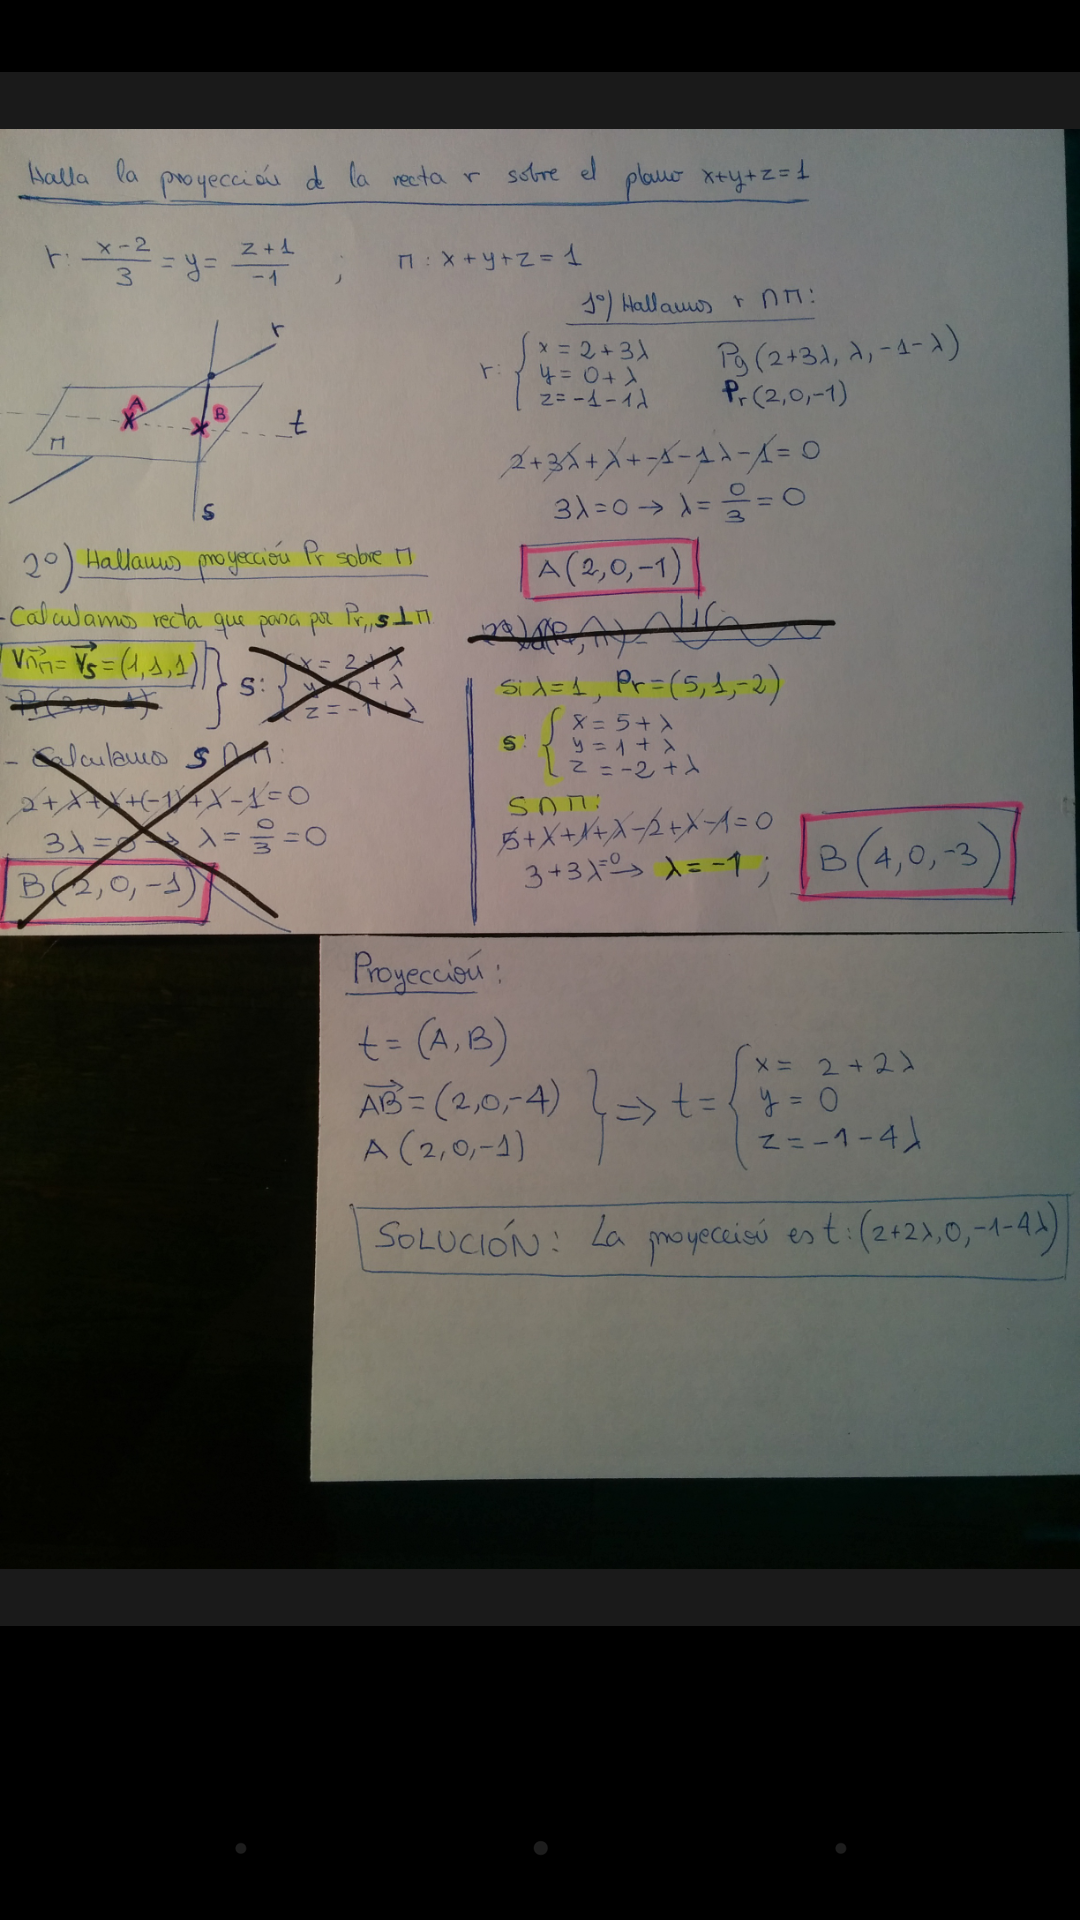 Halla la proyección de la recta r sobre el plano x+y+z=1
r: x-2/3 = y = z+1/-1 ; π: x+y+z=1
1º) Hallamos r ∩ π:
r: { x = 2+3λ
y = 0+λ
z = -1-1λ
Pg(2+3λ, λ, -1-λ)
Pr(2,0,-1)
2+3λ+λ+-1-1λ-1=0
3λ=0 → λ= 0/3 = 0
A(2,0,-1)
r
A
B
t
π
s
2º) Hallamos proyección Pr sobre π
- Calculamos recta que pasa por Pr,, s⊥π
Vnπ = Vs = (1,1,1)
Pr(2,0,-1)
} s: { x = 2+λ
y = 0+λ
z = -1+λ
- Calculamos s ∩ π:
2+λ+λ+(-1)+λ-1=0
3λ=0 → λ= 0/3 = 0
B(2,0,-1)
Si λ=1, Pr=(5,1,-2)
s: { x = 5+λ
y = 1+λ
z = -2+λ
s ∩ π:
5+λ+1+λ-2+λ-1=0
3+3λ=0 → λ=-1;
B(4,0,-3)
Proyección:
t = (A,B)
AB = (2,0,-4)
A(2,0,-1)
} ⇒ t = { x = 2+2λ
y = 0
z = -1-4λ
SOLUCIÓN: La proyección es t:(2+2λ,0,-1-4λ)